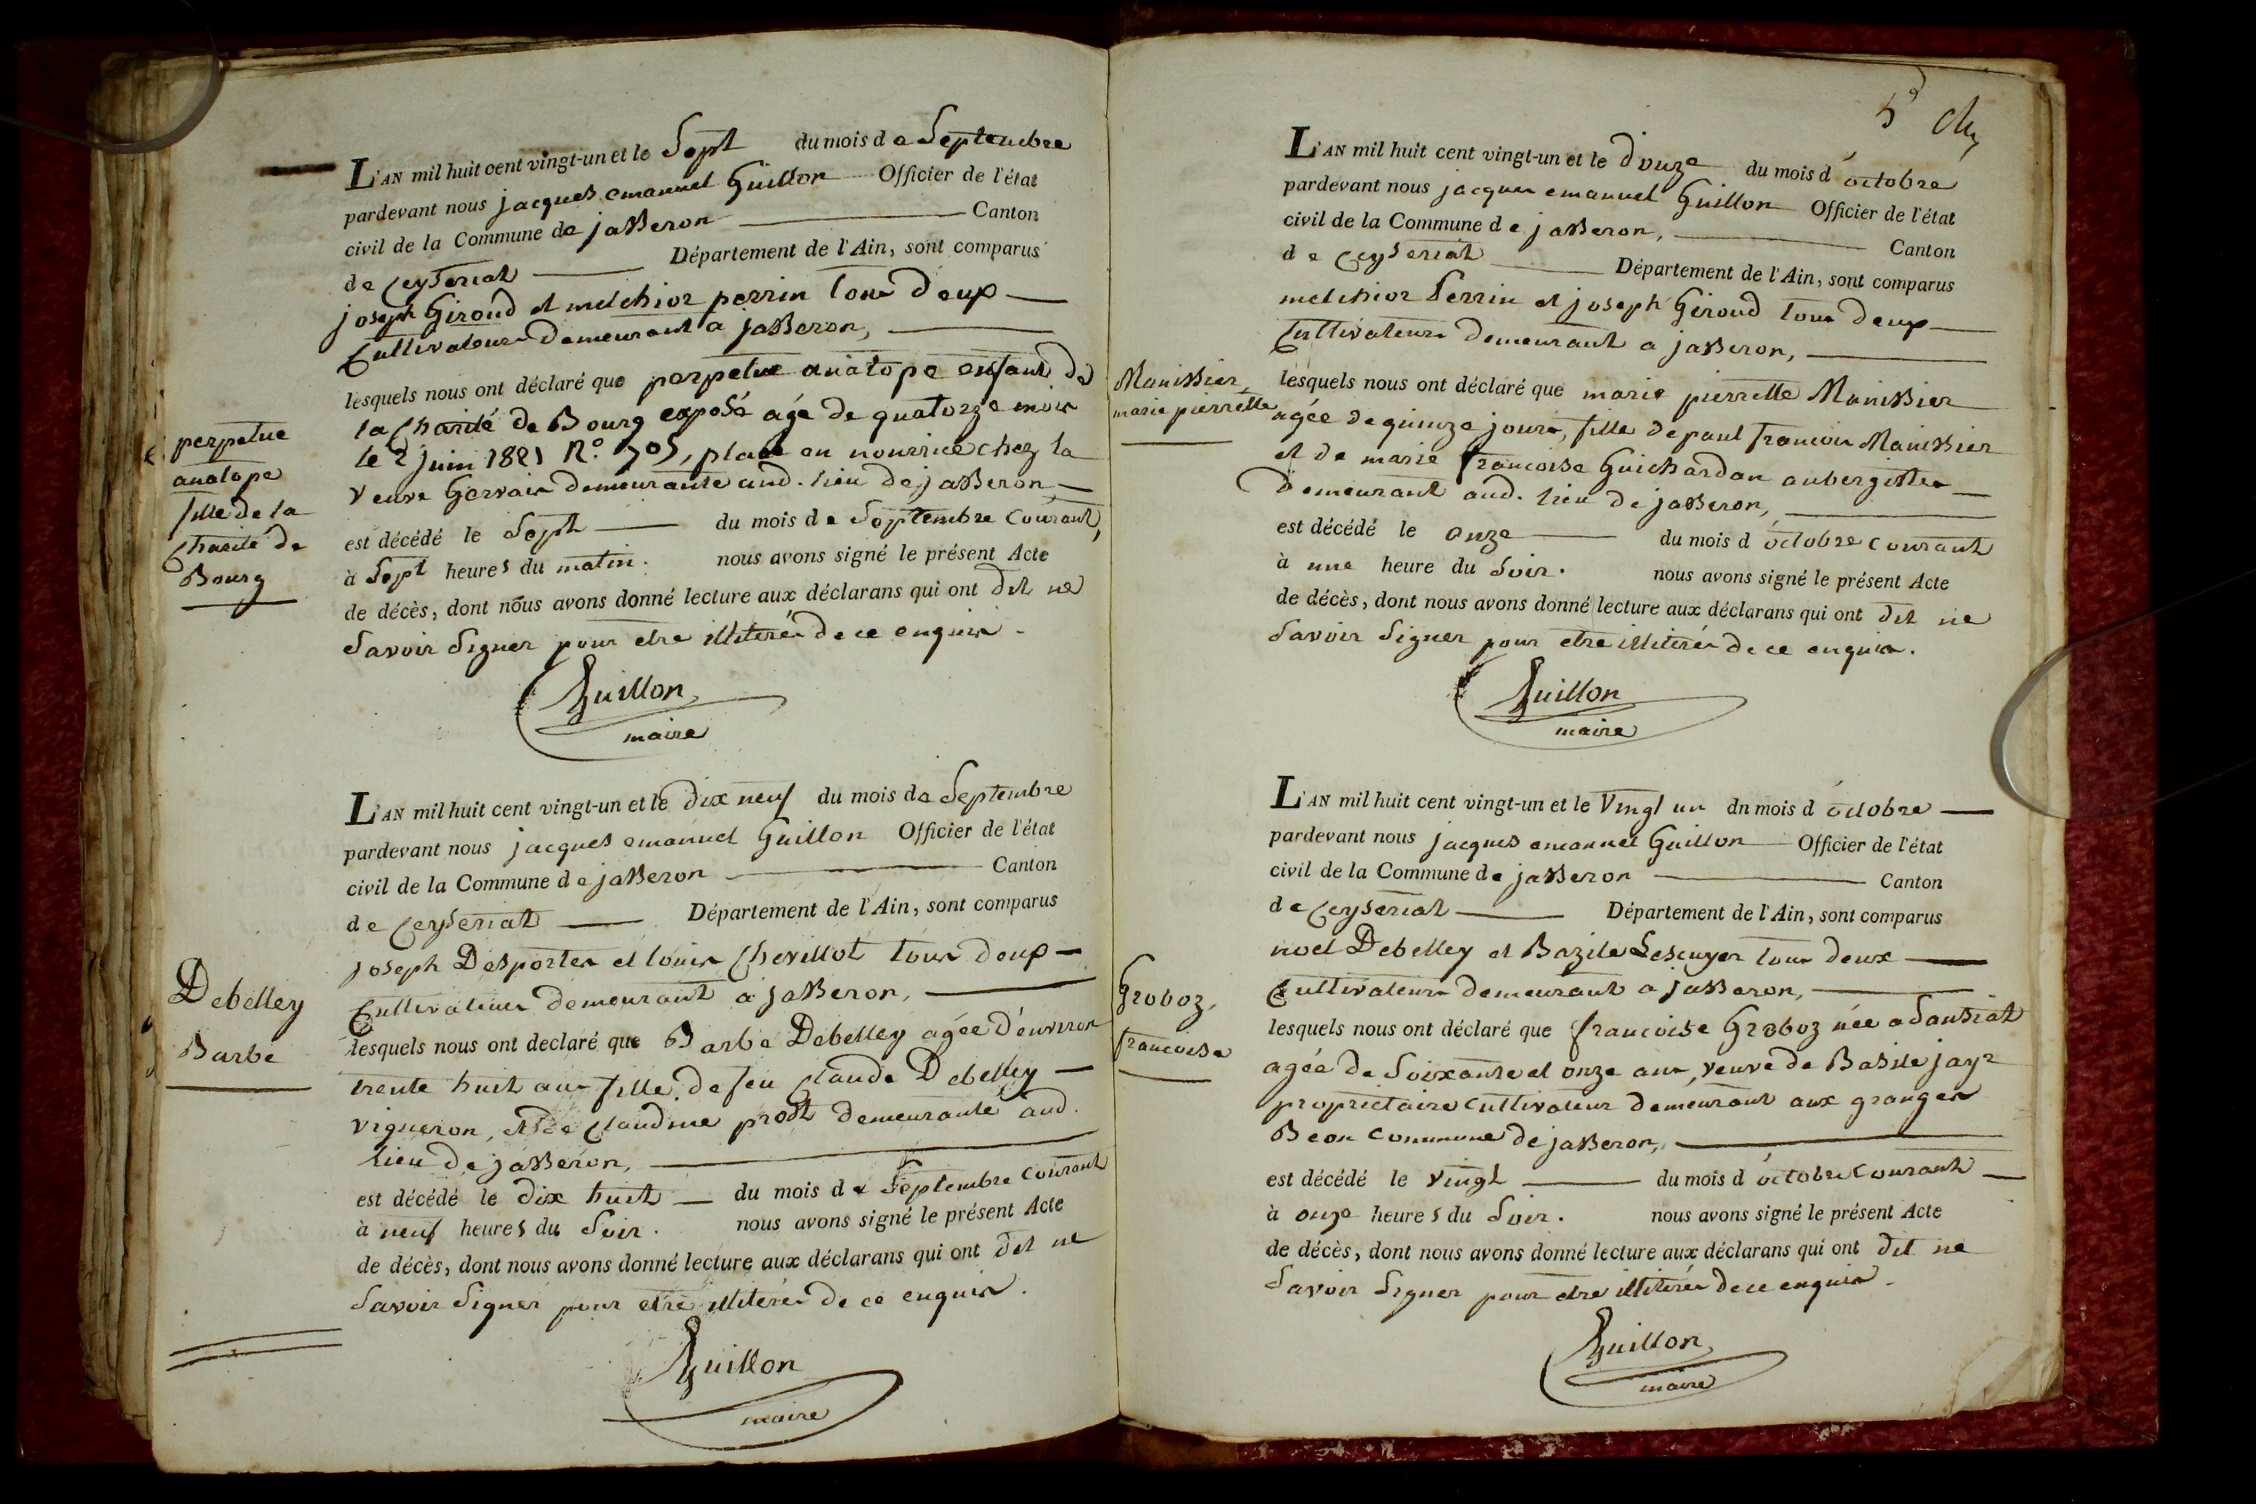 L'AN mil huit cent vingt-un et le Sept du mois de Septembre
pardevant nous jacques emanuel Guillon Officier de l'état
civil de la Commune de jasseron Canton
de Ceyseriat Département de l'Ain, sont comparus
joseph Giroud et melchior perrin tous deux
Cultivateurs demeurant a jasseron,
lesquels nous ont déclaré que perpetue anatope enfant de
la Charité de Bourg exposé agé de quatorze mois
le 2 juin 1821 N.º 705, placé en nourrice chez la
veuve Gervais demeurante aud. lieu de jasseron
est décédé le Sept du mois de Septembre Courant,
à Sept heures du matin. nous avons signé le présent Acte
de décès, dont nous avons donné lecture aux déclarans qui ont dit ne
Savoir Signer pour etre illiterés de ce enquis.
Guillon
maire
perpetue
anatope
fille de la
Charité de
Bourg
L'AN mil huit cent vingt-un et le dix neuf du mois de Septembre
pardevant nous jacques emanuel Guillon Officier de l'état
civil de la Commune de jasseron Canton
de Ceyseriat Département de l'Ain, sont comparus
joseph Desportes et louis Chevillot tous deux
Cultivateurs demeurant a jasseron,
lesquels nous ont déclaré que Barbe Debelley agée d'environ
trente huit ans fille de feu Claude Debelley
vigneron, et de Claudine prost demeurante aud.
lieu de jasseron,
est décédé le dix huit du mois de Septembre Courant
à neuf heures du Soir. nous avons signé le présent Acte
de décès, dont nous avons donné lecture aux déclarans qui ont dit ne
Savoir Signer pour etre illiterés de ce enquis.
Guillon
maire
Debelley
Barbe
L'AN mil huit cent vingt-un et le douze du mois d'octobre
pardevant nous jacques emanuel Guillon Officier de l'état
civil de la Commune de jasseron, Canton
de Ceyseriat Département de l'Ain, sont comparus
melchior Perrin et joseph Giroud tous deux
Cultivateurs demeurant a jasseron,
lesquels nous ont déclaré que marie pierrette Manissier
agée de quinze jours, fille de paul francois Manissier
et de marie francoise Guichardan aubergistes
demeurant aud. lieu de jasseron,
est décédé le onze du mois d'octobre courant
à une heure du Soir. nous avons signé le présent Acte
de décès, dont nous avons donné lecture aux déclarans qui ont dit ne
Savoir Signer pour etre illiterés de ce enquis.
Guillon
maire
Manissier,
marie pierrette
L'AN mil huit cent vingt-un et le Vingt un dn mois d'octobre
pardevant nous jacques emanuel Guillon Officier de l'état
civil de la Commune de jasseron Canton
de Ceyseriat Département de l'Ain, sont comparus
noel Debelley et Bazile Lescuyer tous deux
Cultivateurs demeurant a jasseron,
lesquels nous ont déclaré que francoise Groboz née a Santiat
agée de Soixante et onze ans, veuve de Basile jayr
proprietaire Cultivateur demeurant aux granges
Beon Commune de jasseron,
est décédé le vingt du mois d'octobre Courant
à onze heures du Soir. nous avons signé le présent Acte
de décès, dont nous avons donné lecture aux déclarans qui ont dit ne
Savoir Signer pour etre illiterés de ce enquis.
Guillon
maire
Groboz,
francoise